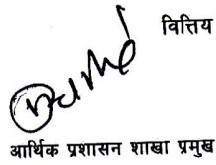 वित्तिय
आर्थिक प्रशासन शाखा प्रमुख